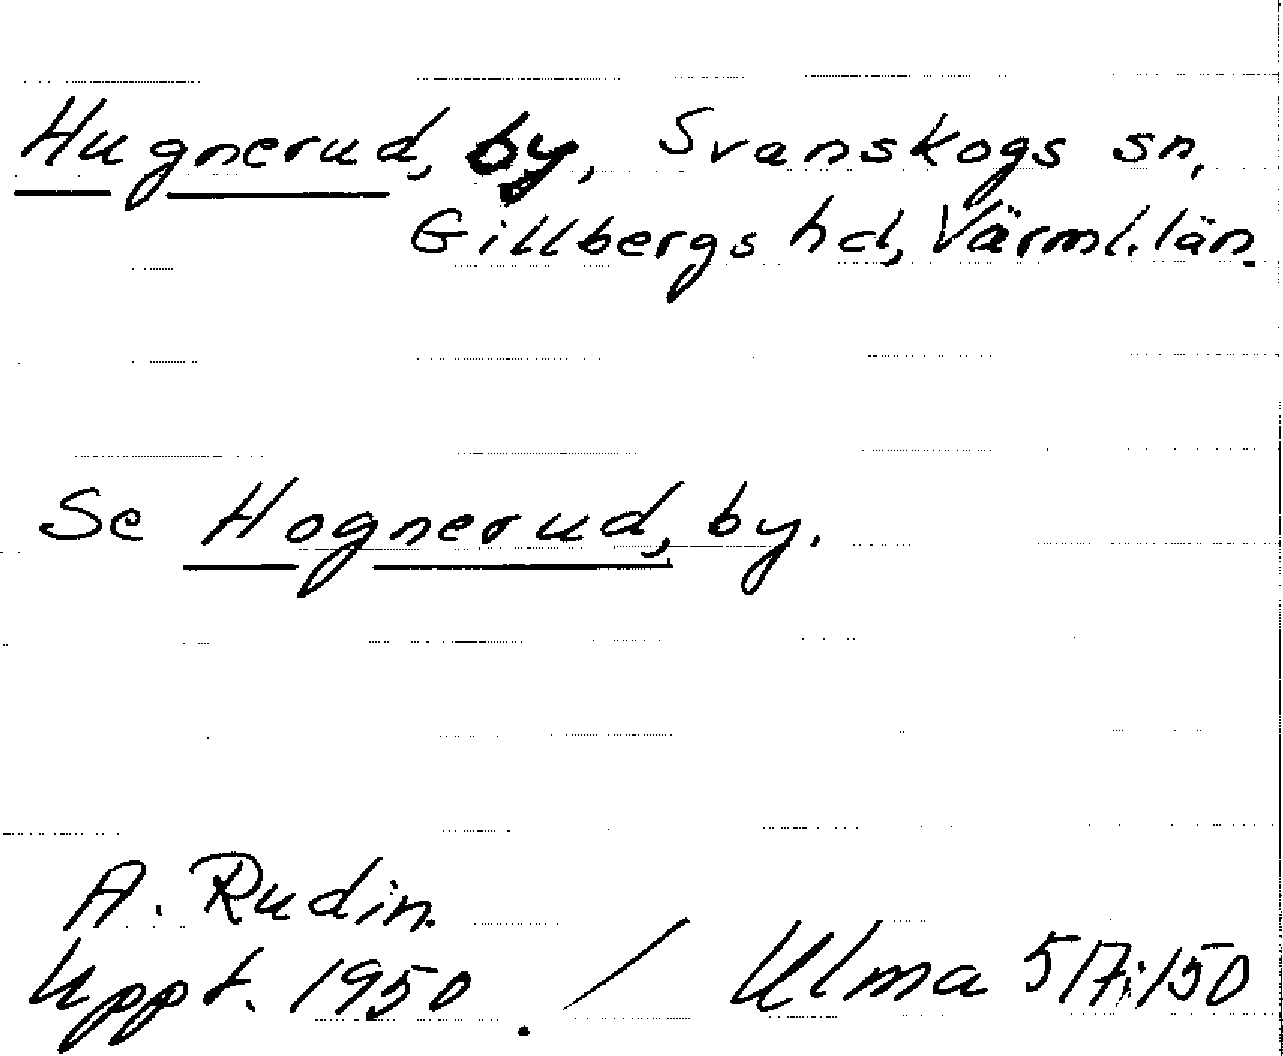 Hugnerud, by, Svanskogs sn,
Gillbergs hd, Värml. län.
Se Hognerud, by.
A. Rudin.
Uppt. 1950. / Ulma 517:150